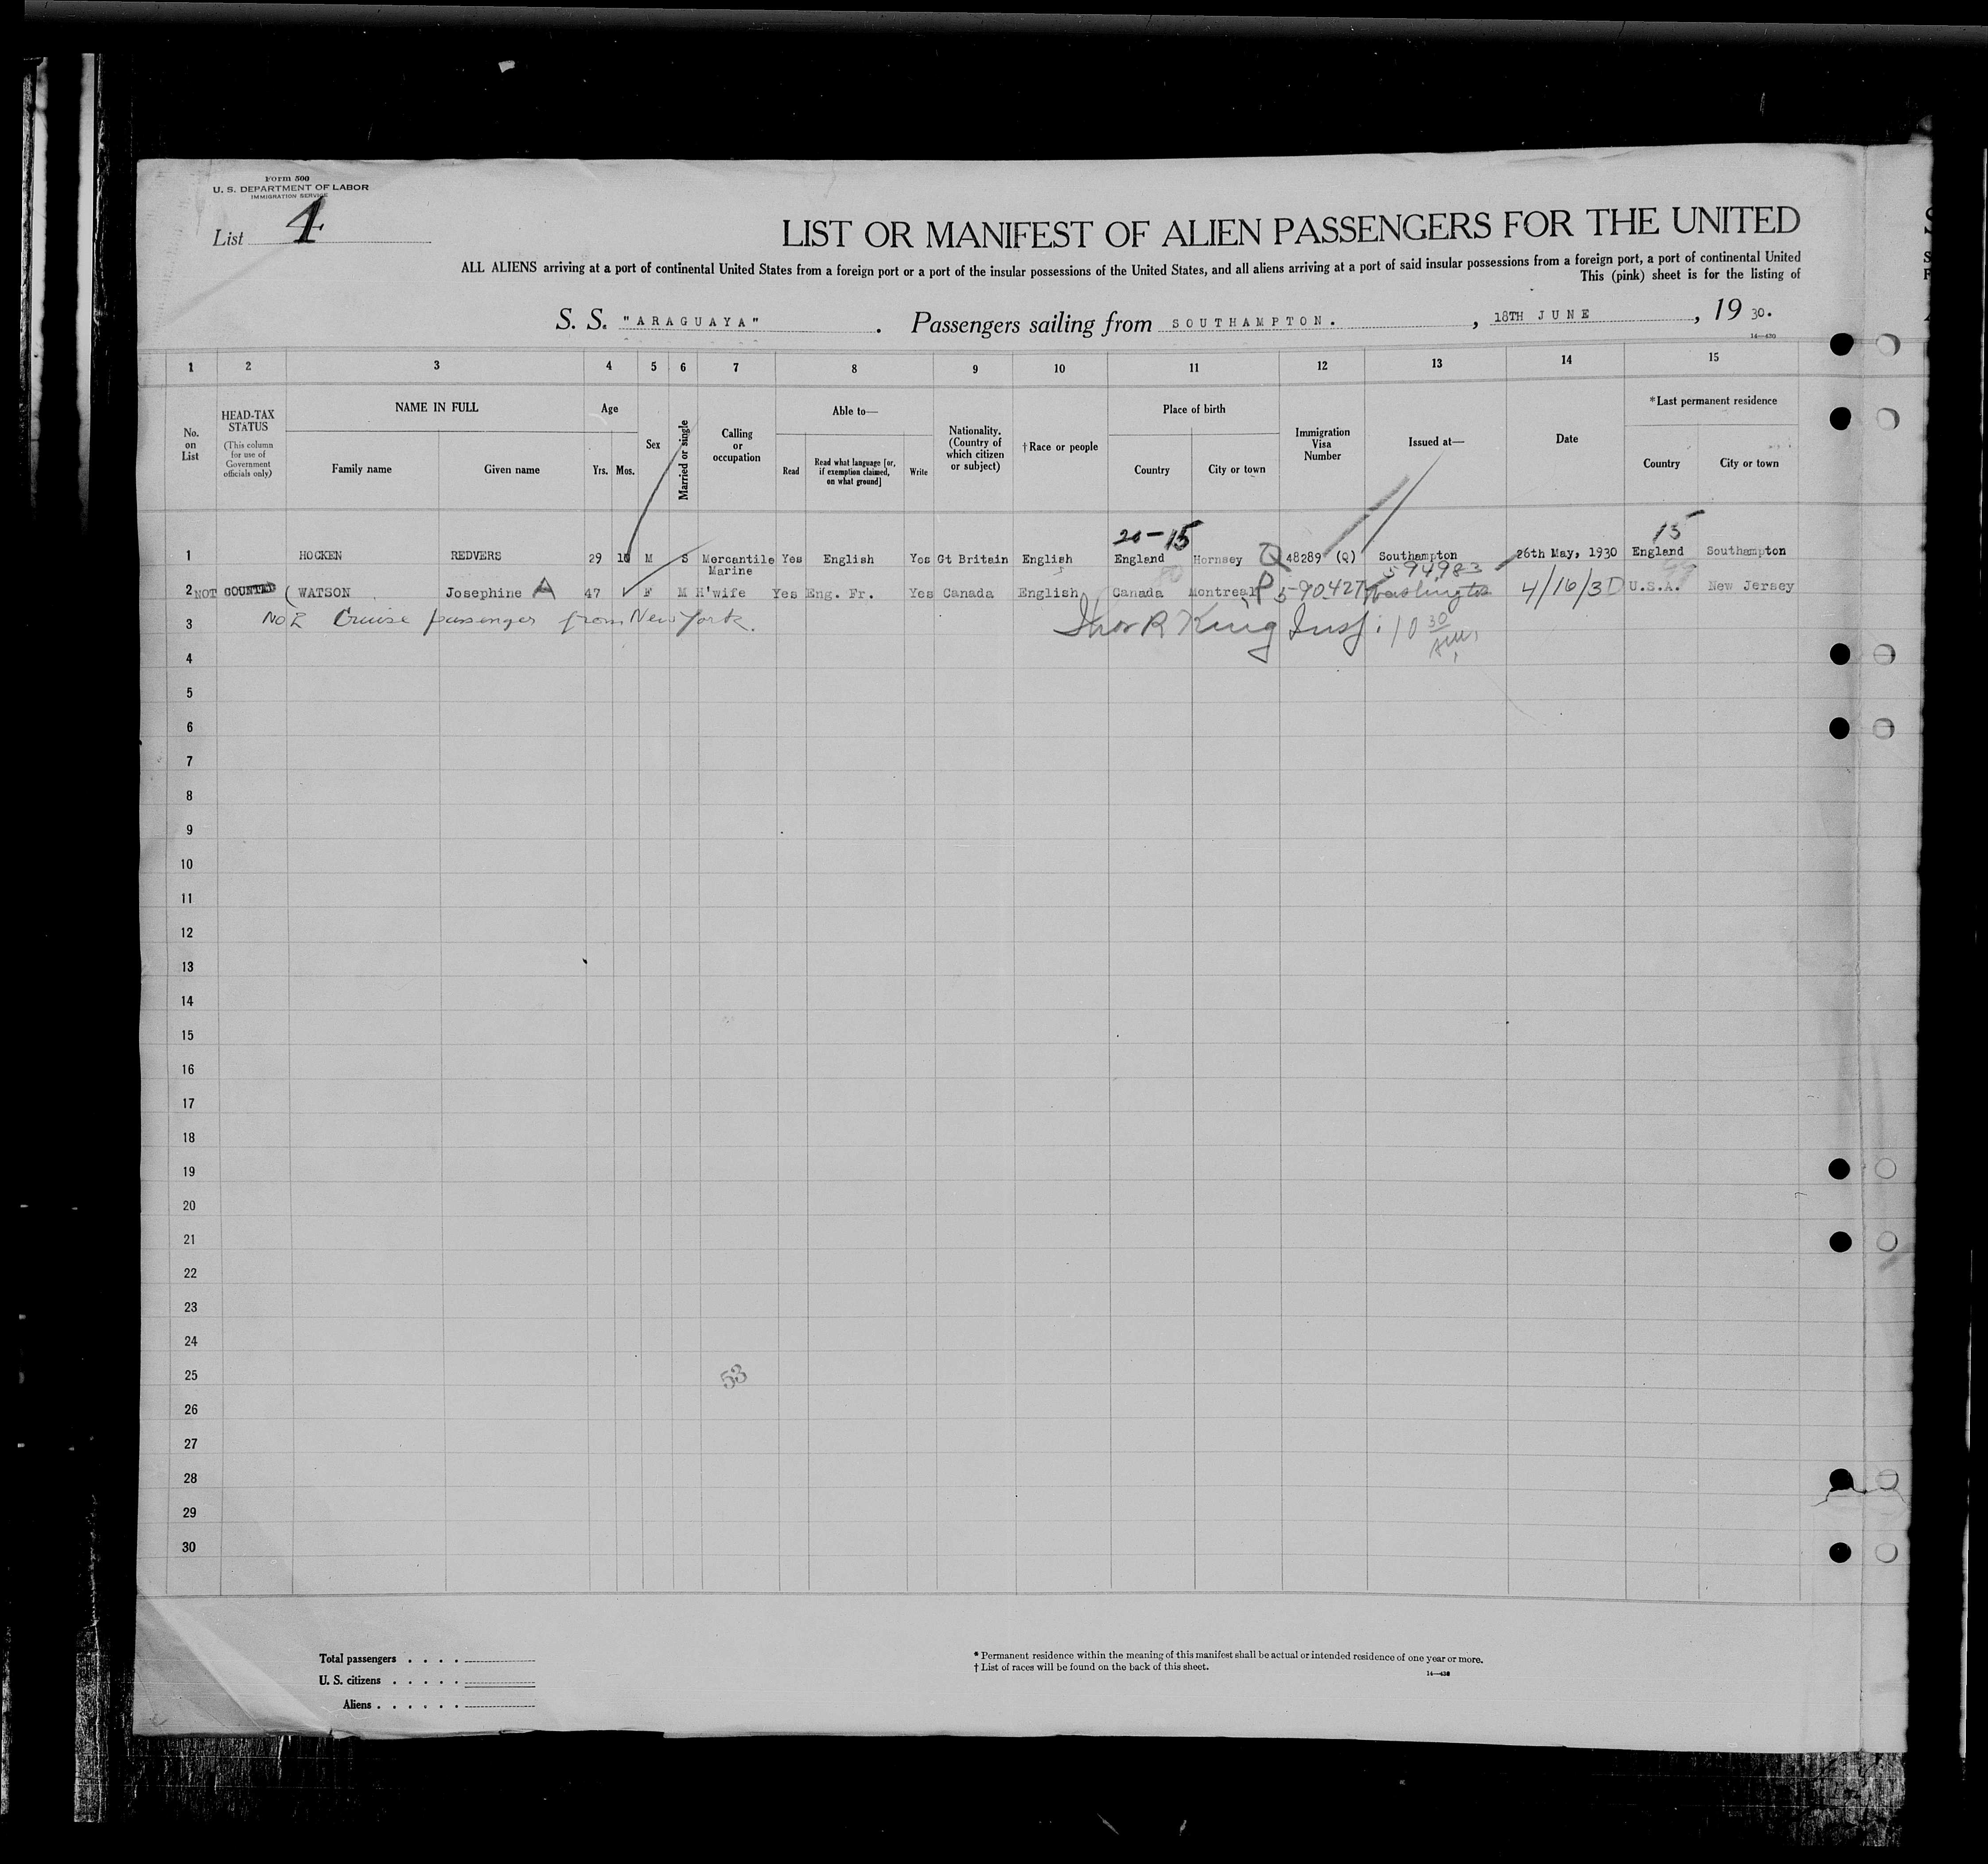 Form 500
U. S. DEPARTMENT OF LABOR
IMMIGRATION SERVICE
List 4
LIST OR MANIFEST OF ALIEN PASSENGERS FOR THE UNITED
ALL ALIENS arriving at a port of continental United States from a foreign port or a port of the insular possessions of the United States, and all aliens arriving at a port of said insular possessions from a foreign port, a port of continental United
This (pink) sheet is for the listing of
S. S. "ARAGUAYA". Passengers sailing from SOUTHAMPTON., 18TH JUNE, 19 30.
1 2 3 4 5 6 7 8 9 10 11 12 13 14 15
No. on List
HEAD-TAX STATUS
(This column for use of Government officials only)
NAME IN FULL
Family name Given name
Age
Yrs. Mos.
Sex
Married or single
Calling or occupation
Able to—
Read Read what language [or, if exemption claimed, on what ground] Write
Nationality. (Country of which citizen or subject)
†Race or people
Place of birth
Country City or town
Immigration Visa Number
Issued at—
Date
*Last permanent residence
Country City or town
20-15 15
1 HOCKEN REDVERS 29 10 M S Mercantile Marine Yes English Yes Gt Britain English England Hornsey Q 48289 (Q) Southampton 26th May, 1930 England Southampton
594983
2 NOT COUNTED (WATSON Josephine A 47 F M H'wife Yes Eng. Fr. Yes Canada English Canada Montreal P 590427 Washington 4/16/30 U.S.A. New Jersey
3 No 2 Cruise passenger from New York. King Insp. 10 30 AM
4
5
6
7
8
9
10
11
12
13
14
15
16
17
18
19
20
21
22
23
24
25 53
26
27
28
29
30
Total passengers . . . .
U. S. citizens . . . . .
Aliens . . . . . .
* Permanent residence within the meaning of this manifest shall be actual or intended residence of one year or more.
† List of races will be found on the back of this sheet.